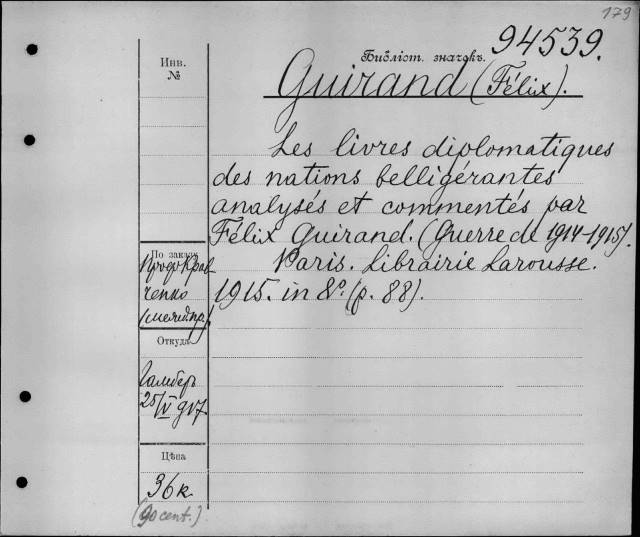 179
94539.
Библіот. значекъ.
Инв.
№
Guirand (Félix).
Les livres diplomatiques
des nations belligérantes
analysés et commentés par
Félix Guirand. (Guerre de 1914-1915).
Paris. Librairie Larousse.
1915. in 8º. (p. 88).
По заказу
Проф. Крав
ченко
Откуда
25/IV 917
Цѣна
36 к
(90 cent.)